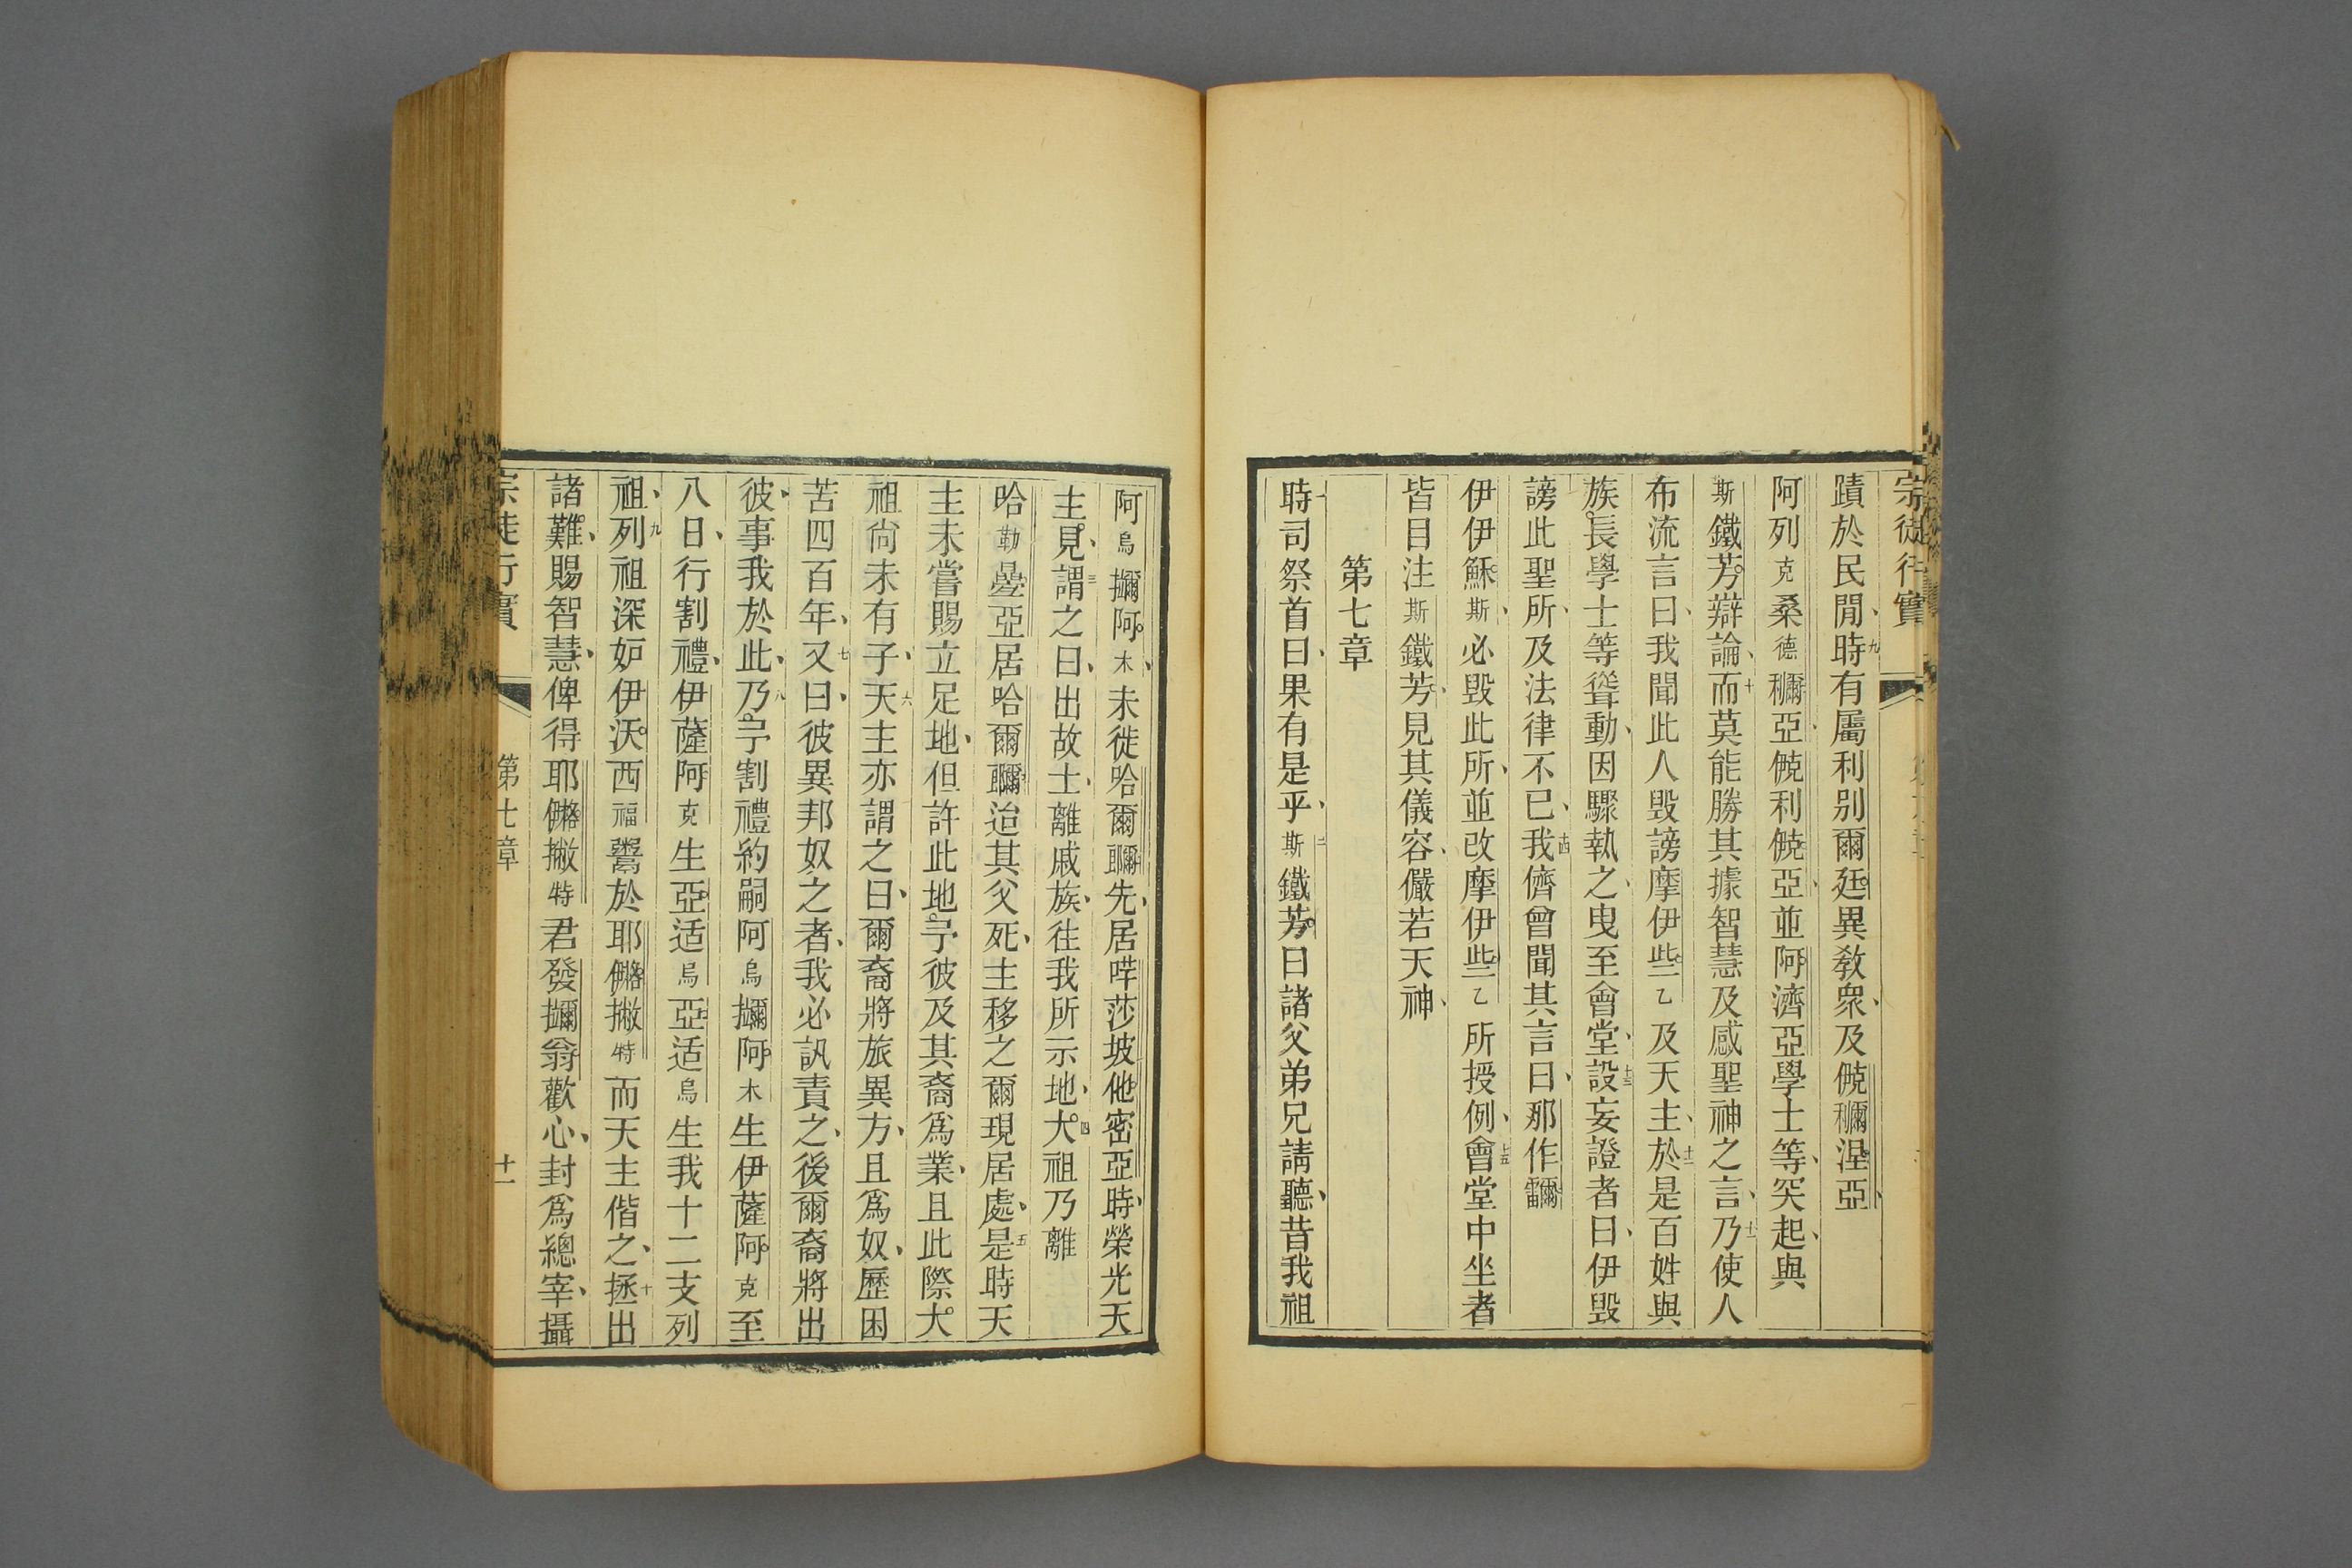 宗徒行實
蹟於民閒、九時有屬利别爾廷異教衆、及𠆩涅亞、
阿列克桑德亞、利亞、並阿濟亞學士等、突起、與
斯鐵芳辯論、十而莫能勝其據智慧及感聖神之言、十一乃使人
布流言曰、我聞此人毁謗摩伊些乙及天主、十二於是百姓與
族長學士等聳動、因驟執之、曳至會堂、十三設妄證者曰、伊毁
謗此聖所、及法律不已、十四我儕曾聞其言曰、那作
伊伊穌斯、必毁此所、並改摩伊些乙所授例、十五會堂中坐者
皆目注斯鐵芳、見其儀容、儼若天神、
第七章
一時司祭首曰、果有是乎、二斯鐵芳曰諸父弟兄請聽、昔我祖
阿烏阿木、未徙哈爾先、居莎坡他密亞時、榮光天
主見、三謂之曰、出故土、離戚族、往我所示地、四大祖乃離
哈勒亞居哈爾迨其父死、主移之爾現居處、五是時天
主未嘗賜立足地、但許此地予彼及其裔爲業、且此際大
祖尙未有子、六天主亦謂之曰、爾裔將旅異方、且爲奴、歷困
苦四百年、七又曰、彼異邦奴之者、我必訊責之、後爾裔將出
彼、事我於此、八乃予割禮約嗣阿烏阿木生伊薩阿克至
八日、行割禮、伊薩阿克生亞适烏亞适烏生我十二支列
祖、九列祖深妒伊沃西福鬻於耶撇特而天主偕之、十拯出
諸難、賜智慧、俾得耶撇特君發翁歡心、封爲總宰、攝
宗徒行實
第七章
十一